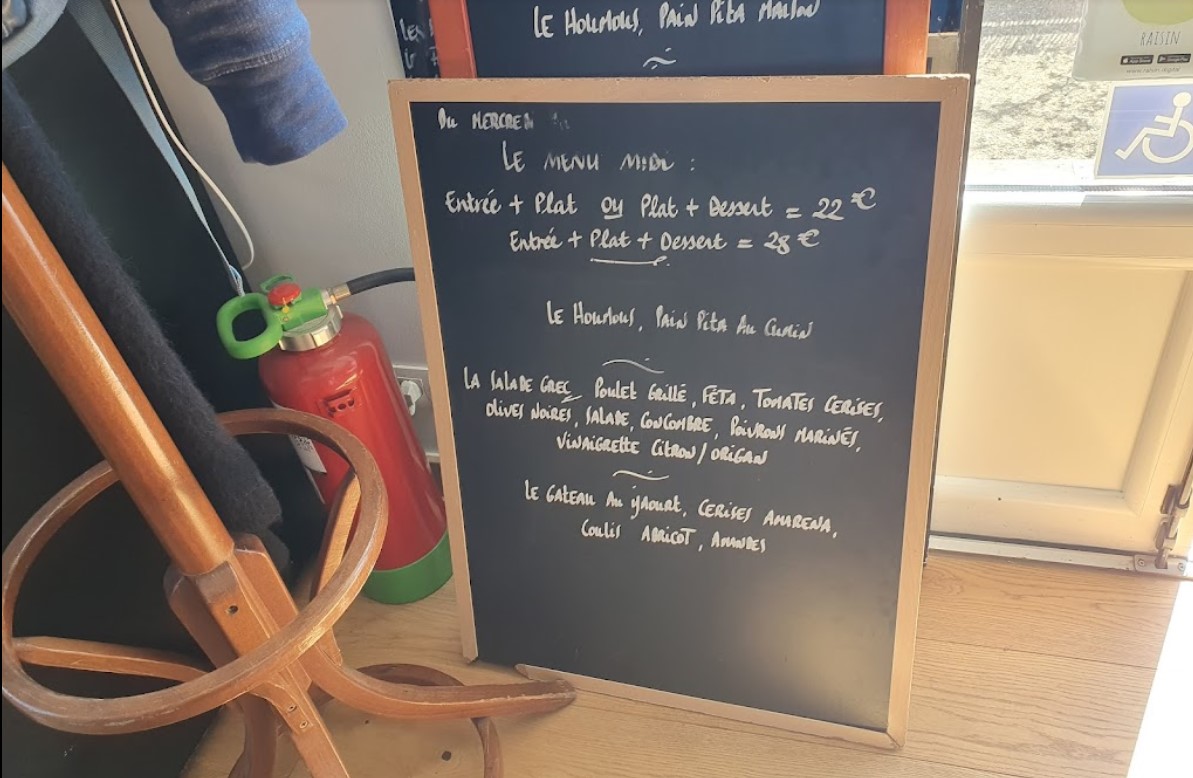 LE HOUMOUS, PAIN PITA MAISON
RAISIN
DU MERCREDI
LE MENU MIDI :
Entrée + Plat ou Plat + Dessert = 22 €
Entrée + Plat + Dessert = 28 €
LE HOUMOUS, PAIN PITA AU CUMIN
LA SALADE GREC, Poulet Grillé, FÉTA, TOMATES CERISES,
OLIVES NOIRES, SALADE, CONCOMBRE, POIVRONS MARINÉS,
VINAIGRETTE CITRON / ORIGAN
LE GATEAU AU YAOURT, CERISES AMARENA,
COULIS ABRICOT, AMANDES